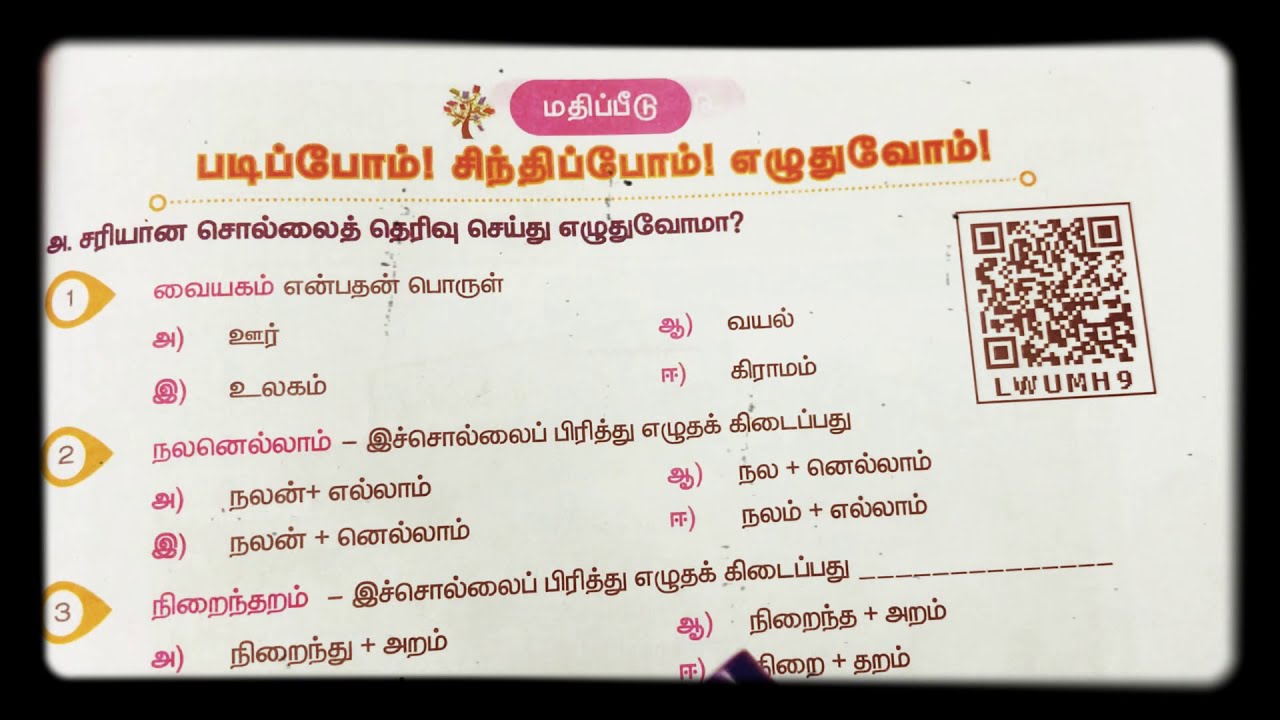 மதிப்பீடு
படிப்போம்! சிந்திப்போம்! எழுதுவோம்!
அ. சரியான சொல்லைத் தெரிவு செய்து எழுதுவோமா?
1 வையகம் என்பதன் பொருள்
அ) ஊர் ஆ) வயல்
இ) உலகம் ஈ) கிராமம்
LWUMH9
2 நலனெல்லாம் – இச்சொல்லைப் பிரித்து எழுதக் கிடைப்பது
அ) நலன்+ எல்லாம் ஆ) நல + னெல்லாம்
இ) நலன் + னெல்லாம் ஈ) நலம் + எல்லாம்
3 நிறைந்தறம் – இச்சொல்லைப் பிரித்து எழுதக் கிடைப்பது _______________
அ) நிறைந்து + அறம் ஆ) நிறைந்த + அறம்
ஈ) நிறை + தறம்